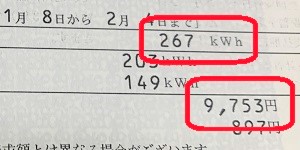 1月 8日から 2月 4日まで]
267 kWh
203kWh
149kWh
9,753円
897円
求額とは異なる場合がございます